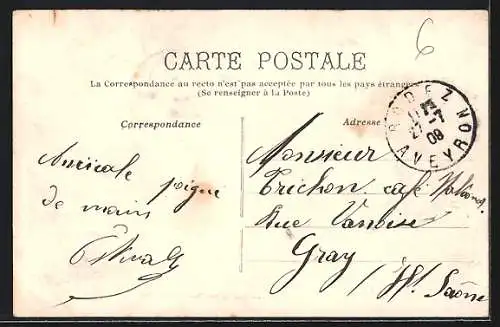 6
CARTE POSTALE
La Correspondance au recto n'est pas acceptée par tous les pays étrangers
(Se renseigner à la Poste)
Correspondance
Adresse
RODEZ
27-7
09
AVEYRON
Amicale poigné
de main
Monsieur
Trichon café National.
Rue Vanoise
Gray
Hte Saône